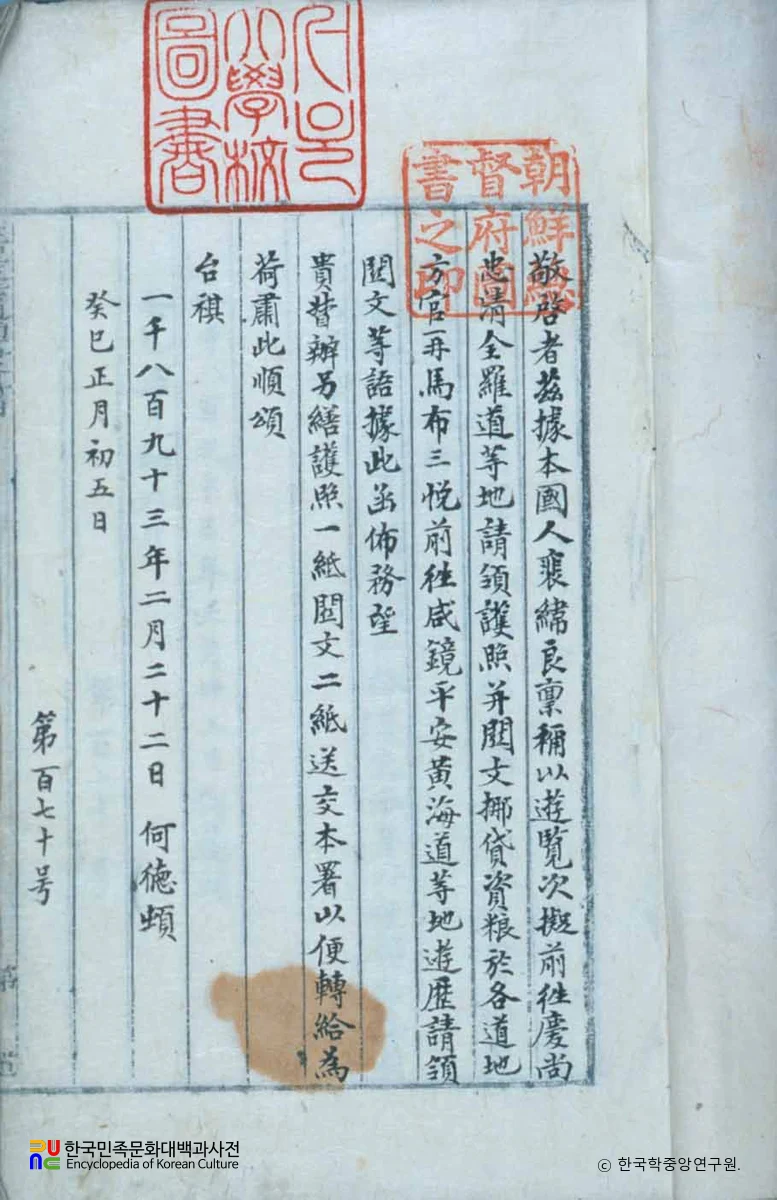 서울
大學校
圖書
朝鮮總
督府圖
書之印
敬啓者茲據本國人裵緯良稟稱以遊覽次擬前往慶尚
忠清全羅道等地請領護照并関文挪貸資粮於各道地
方官再馬布三悅前往咸鏡平安黃海道等地遊歷請領
関文等語據此函佈務望
貴督辦另繕護照一紙関文二紙送交本署以便轉給為
荷肅此順頌
台祺
一千八百九十三年二月二十二日 何德頓
癸巳正月初五日
第百七十号
한국민족문화대백과사전
Encyclopedia of Korean Culture
ⓒ 한국학중앙연구원.